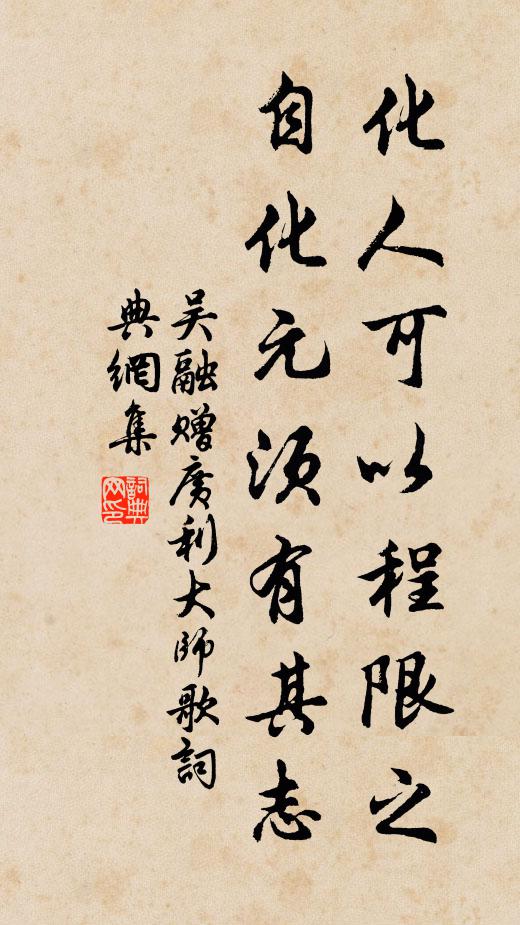 化人可以程限之
自化元須有其志
吴融赠廣利大師歌詞
典網集
詞典
网印